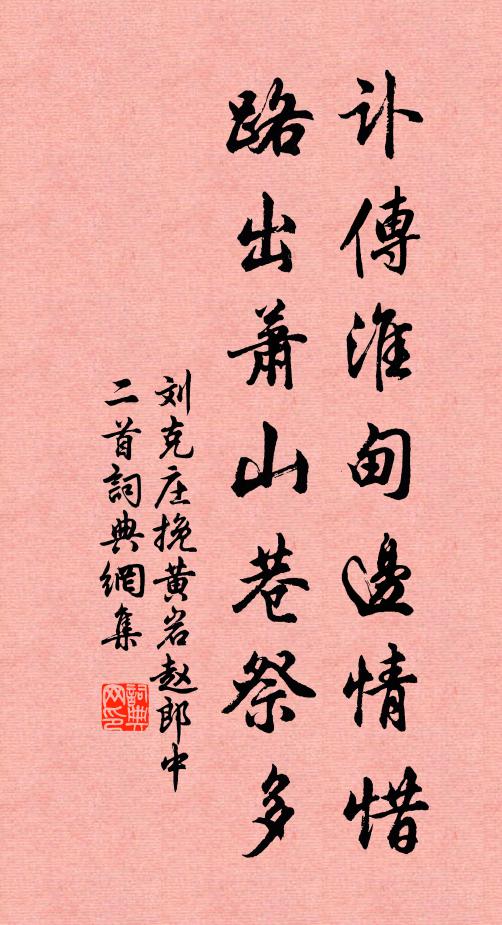 讣傳淮甸邊情惜
路出萧山巷祭多
刘克庄挽黄岩赵郎中
二首詞典網集
詞典网印